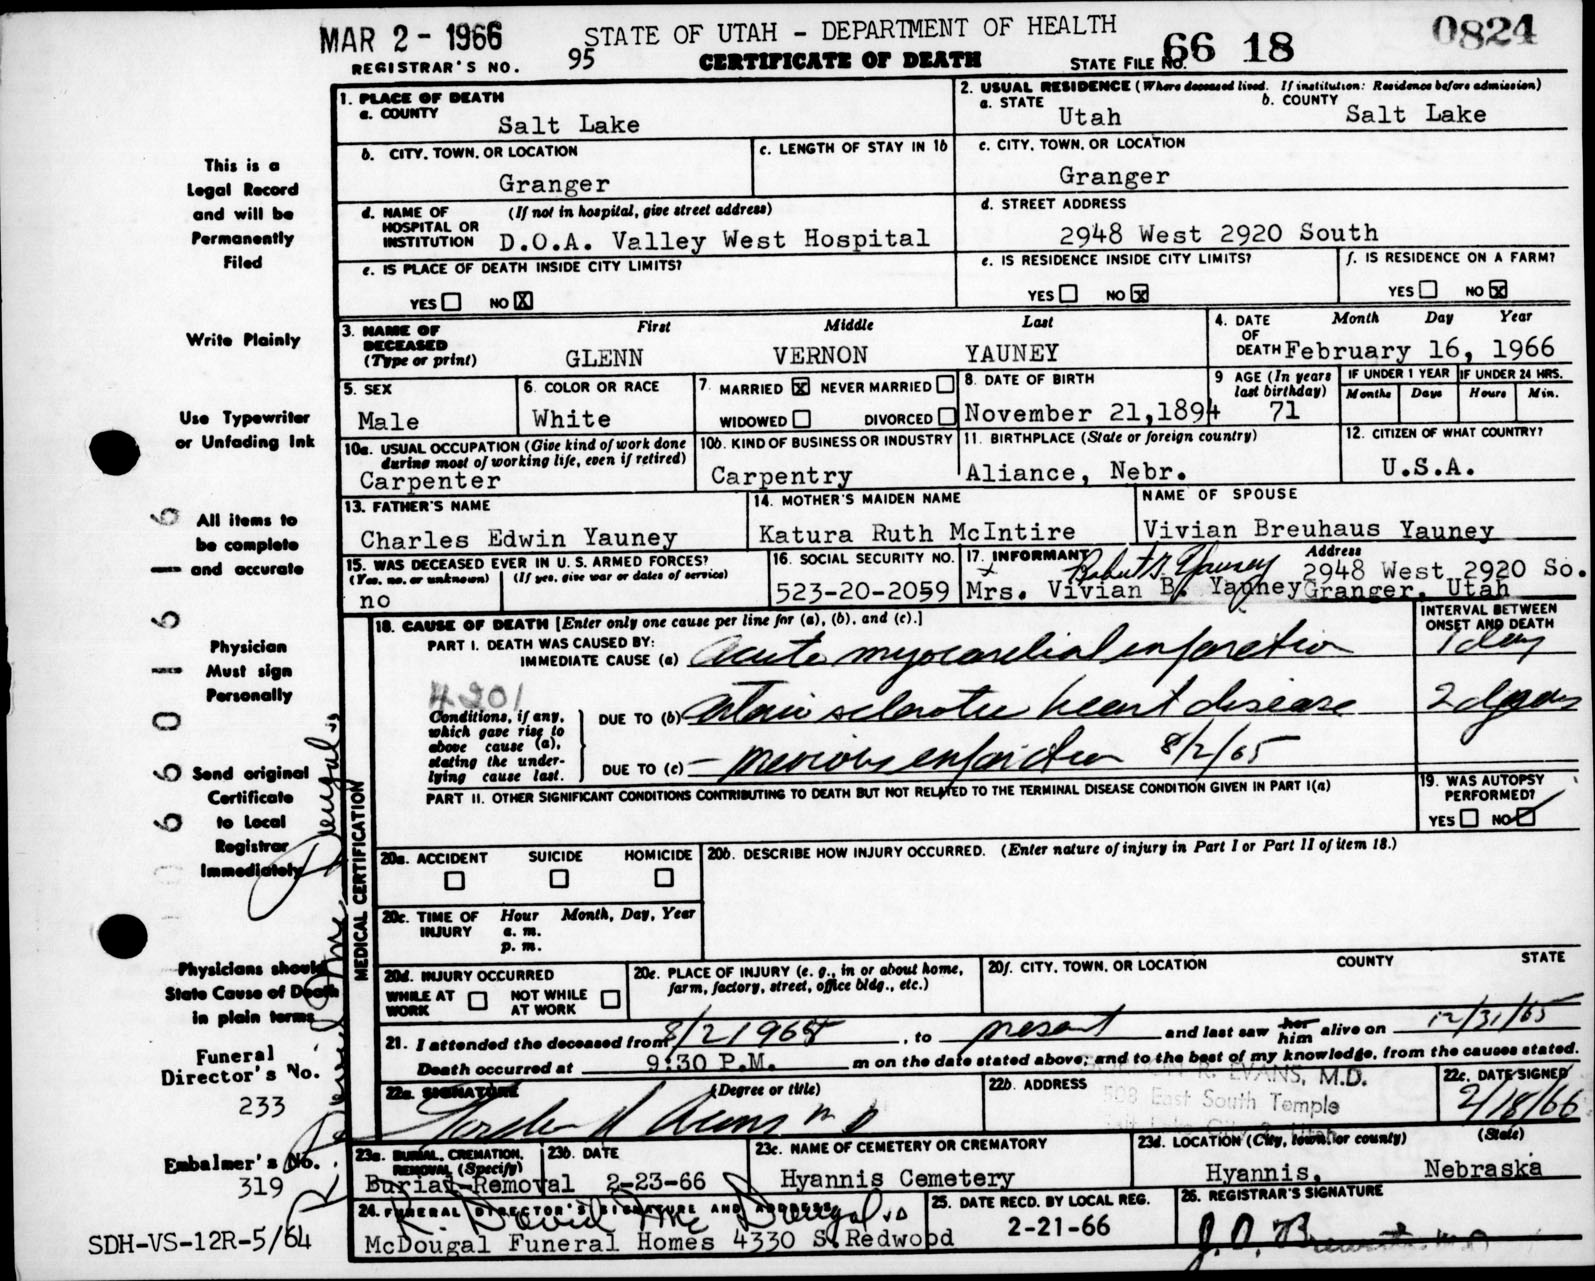 MAR 2 - 1966
STATE OF UTAH - DEPARTMENT OF HEALTH
0824
REGISTRAR'S NO. 95
CERTIFICATE OF DEATH
STATE FILE NO. 66 18
1. PLACE OF DEATH
a. COUNTY
Salt Lake
2. USUAL RESIDENCE (Where deceased lived. If institution: Residence before admission)
a. STATE
Utah
b. COUNTY
Salt Lake
b. CITY, TOWN, OR LOCATION
Granger
c. LENGTH OF STAY IN 1b
c. CITY, TOWN, OR LOCATION
Granger
d. NAME OF HOSPITAL OR INSTITUTION (If not in hospital, give street address)
D.O.A. Valley West Hospital
d. STREET ADDRESS
2948 West 2920 South
e. IS PLACE OF DEATH INSIDE CITY LIMITS?
YES NO X
e. IS RESIDENCE INSIDE CITY LIMITS?
YES NO X
f. IS RESIDENCE ON A FARM?
YES NO X
3. NAME OF DECEASED (Type or print)
First Middle Last
GLENN VERNON YAUNEY
4. DATE OF DEATH
Month Day Year
February 16, 1966
5. SEX
Male
6. COLOR OR RACE
White
7. MARRIED X NEVER MARRIED
WIDOWED DIVORCED
8. DATE OF BIRTH
November 21,1894
9 AGE (In years last birthday)
71
IF UNDER 1 YEAR
Months Days
IF UNDER 24 HRS.
Hours Min.
10a. USUAL OCCUPATION (Give kind of work done during most of working life, even if retired)
Carpenter
10b. KIND OF BUSINESS OR INDUSTRY
Carpentry
11. BIRTHPLACE (State or foreign country)
Aliance, Nebr.
12. CITIZEN OF WHAT COUNTRY?
U.S.A.
13. FATHER'S NAME
Charles Edwin Yauney
14. MOTHER'S MAIDEN NAME
Katura Ruth McIntire
NAME OF SPOUSE
Vivian Breuhaus Yauney
15. WAS DECEASED EVER IN U. S. ARMED FORCES?
(Yes, no, or unknown) (If yes, give war or dates of service)
no
16. SOCIAL SECURITY NO.
523-20-2059
17. INFORMANT
Yauney
Mrs. Vivian B. Yauney
Address
2948 West 2920 So.
Granger, Utah
18. CAUSE OF DEATH [Enter only one cause per line for (a), (b), and (c).]
INTERVAL BETWEEN ONSET AND DEATH
PART I. DEATH WAS CAUSED BY:
IMMEDIATE CAUSE (a) Acute myocardial infarction 1 day
4201
Conditions, if any, which gave rise to above cause (a), stating the underlying cause last.
DUE TO (b) arteriosclerotic heart disease
DUE TO (c) - previous infarction 8/2/65
PART II. OTHER SIGNIFICANT CONDITIONS CONTRIBUTING TO DEATH BUT NOT RELATED TO THE TERMINAL DISEASE CONDITION GIVEN IN PART I(a)
19. WAS AUTOPSY PERFORMED?
YES NO
20a. ACCIDENT SUICIDE HOMICIDE
20b. DESCRIBE HOW INJURY OCCURRED. (Enter nature of injury in Part I or Part II of item 18.)
20c. TIME OF INJURY
Hour Month, Day, Year
a. m.
p. m.
20d. INJURY OCCURRED
WHILE AT WORK NOT WHILE AT WORK
20e. PLACE OF INJURY (e. g., in or about home, farm, factory, street, office bldg., etc.)
20f. CITY, TOWN, OR LOCATION COUNTY STATE
21. I attended the deceased from 8/2 1965, to present and last saw her him alive on 12/31/65
Death occurred at 9:30 P.M. m on the date stated above; and to the best of my knowledge, from the causes stated.
22a. SIGNATURE (Degree or title)
Gordon R Evans M D
22b. ADDRESS
GORDON R. EVANS, M.D.
508 East South Temple
22c. DATE SIGNED
2/18/66
23a. BURIAL, CREMATION, REMOVAL (Specify)
Burial-Removal
23b. DATE
2-23-66
23c. NAME OF CEMETERY OR CREMATORY
Hyannis Cemetery
23d. LOCATION (City, town, or county) (State)
Hyannis, Nebraska
24. FUNERAL DIRECTOR'S SIGNATURE AND ADDRESS
R. David McDougal
McDougal Funeral Homes 4330 S. Redwood
25. DATE RECD. BY LOCAL REG.
2-21-66
26. REGISTRAR'S SIGNATURE
MEDICAL CERTIFICATION
This is a
Legal Record
and will be
Permanently
Filed
Write Plainly
Use Typewriter
or Unfading Ink
All items to
be complete
and accurate
Physician
Must sign
Personally
Send original
Certificate
to Local
Registrar
Immediately
Physicians should
State Cause of Death
in plain terms
Funeral
Director's No.
233
Embalmer's No.
319
SDH-VS-12R-5/64